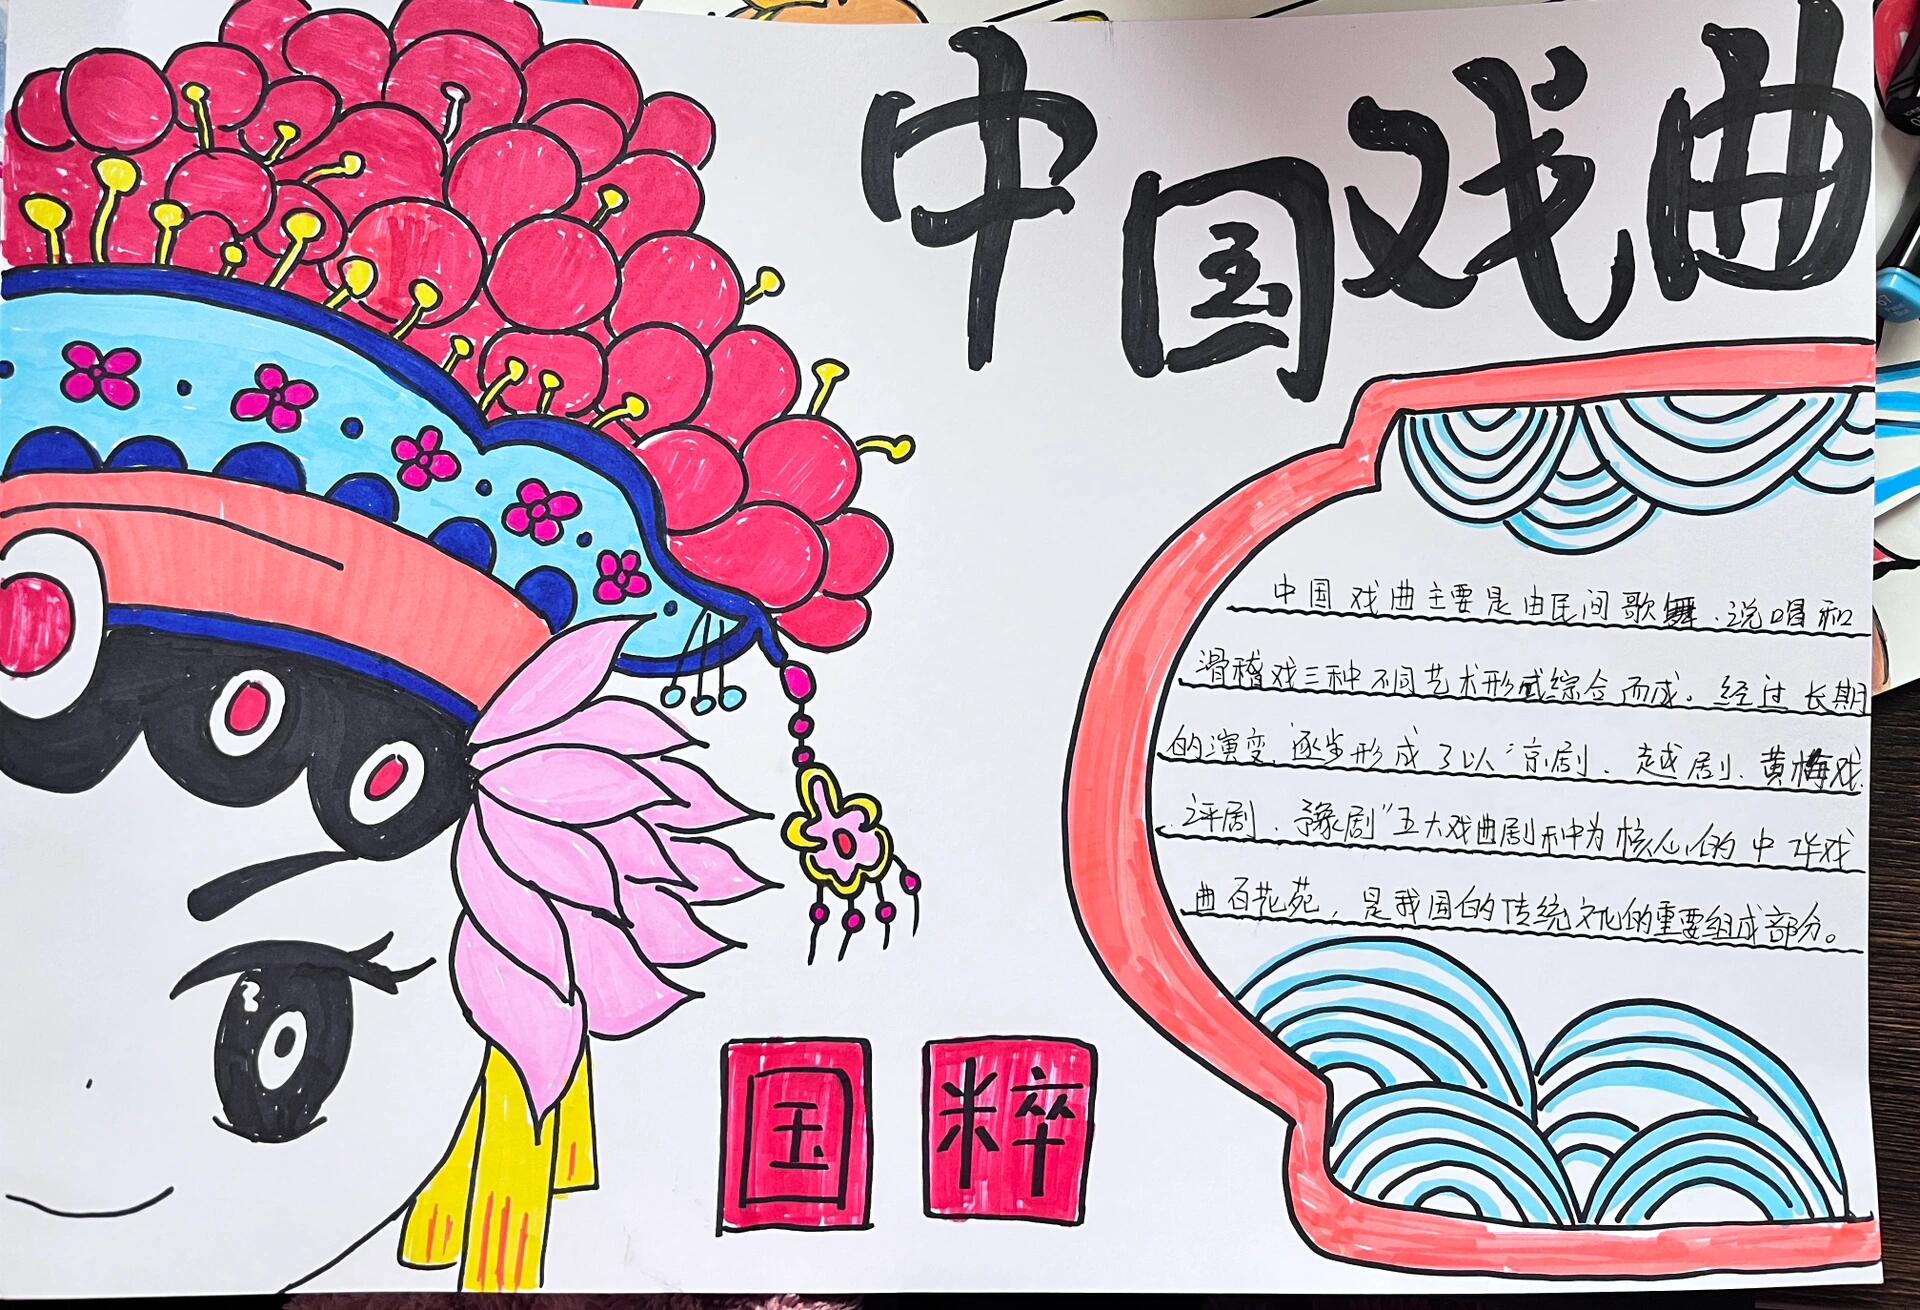 中国戏曲
中国戏曲主要是由民间歌舞、说唱和
滑稽戏三种不同艺术形式综合而成。经过长期
的演变,逐步形成了以“京剧、越剧、黄梅戏
、评剧、豫剧”五大戏曲剧种为核心的中华戏
曲百花苑,是我国的传统文化的重要组成部分。
国粹